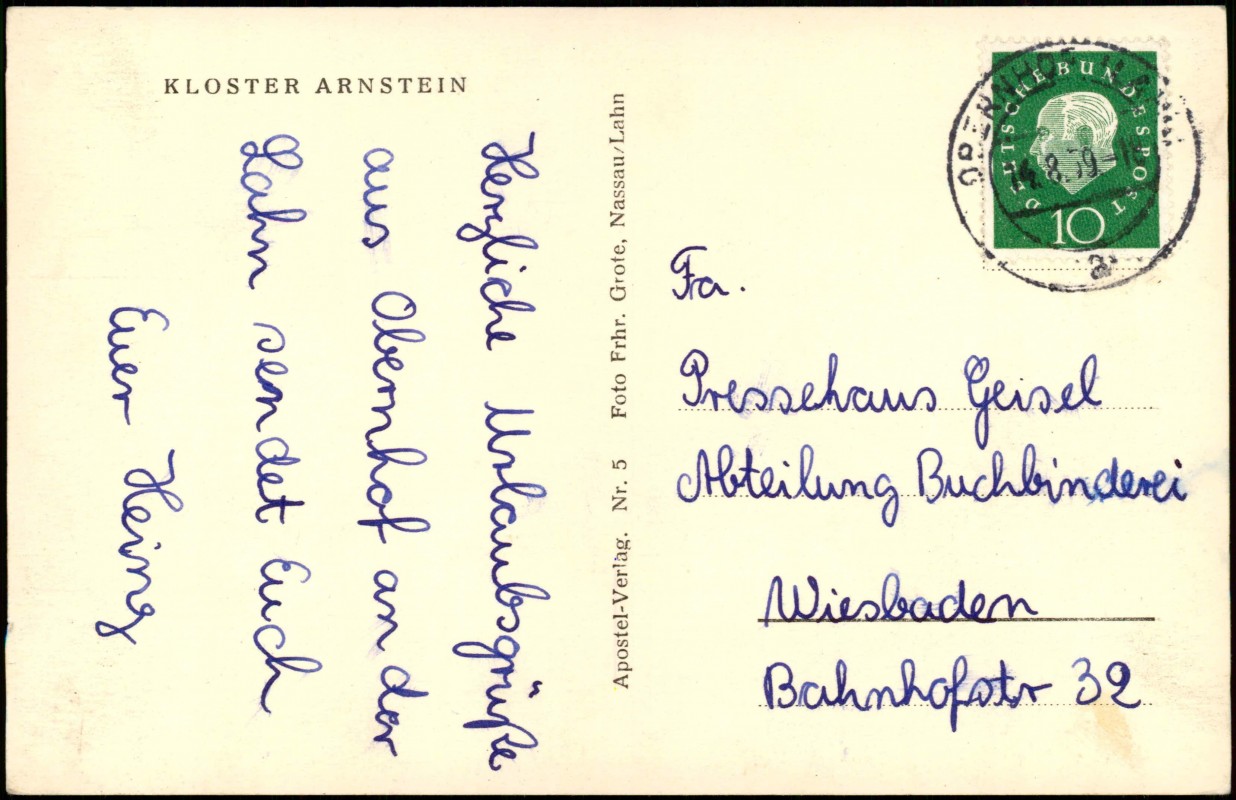 KLOSTER ARNSTEIN
Herzliche Urlaubsgrüße
aus Obernhof an der
Lahn sendet Euch
Euer Heinz
Apostel-Verlag. Nr. 5 Foto Frhr. Grote, Nassau/Lahn
DEUTSCHE BUNDESPOST
10
OBERNHOF
14.8.59
a
Fa.
Pressehaus Geisel
Abteilung Buchbinderei
Wiesbaden
Bahnhofstr 32